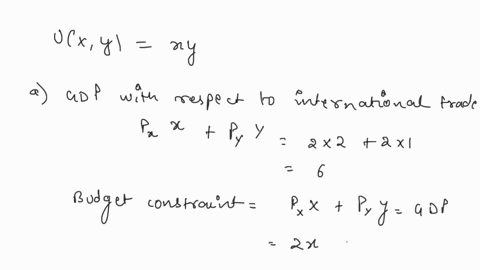 U(x, y) = xy
a) GDP with respect to international trade
Px x + Py y = 2 x 2 + 2 x 1
= 6
Budget constraint = Px x + Py y = GDP
= 2x